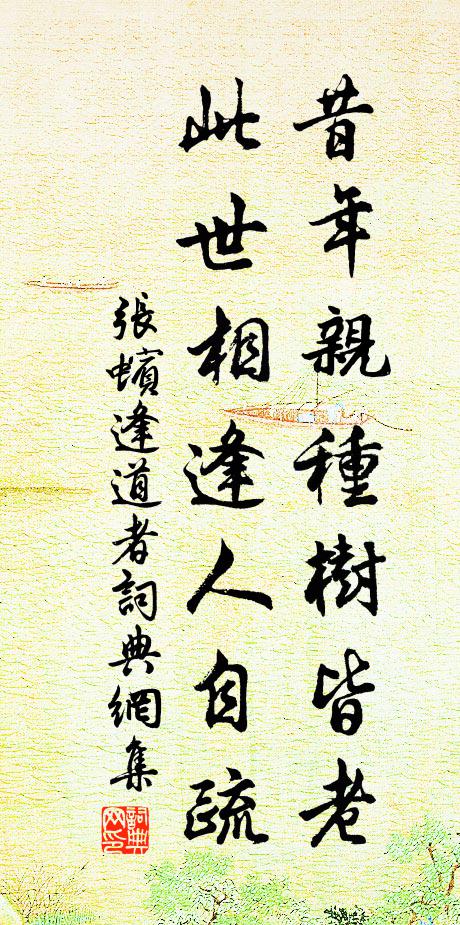 昔年親種樹皆老
此世相逢人自疏
張蠙逢道者詞典網集
詞典網印